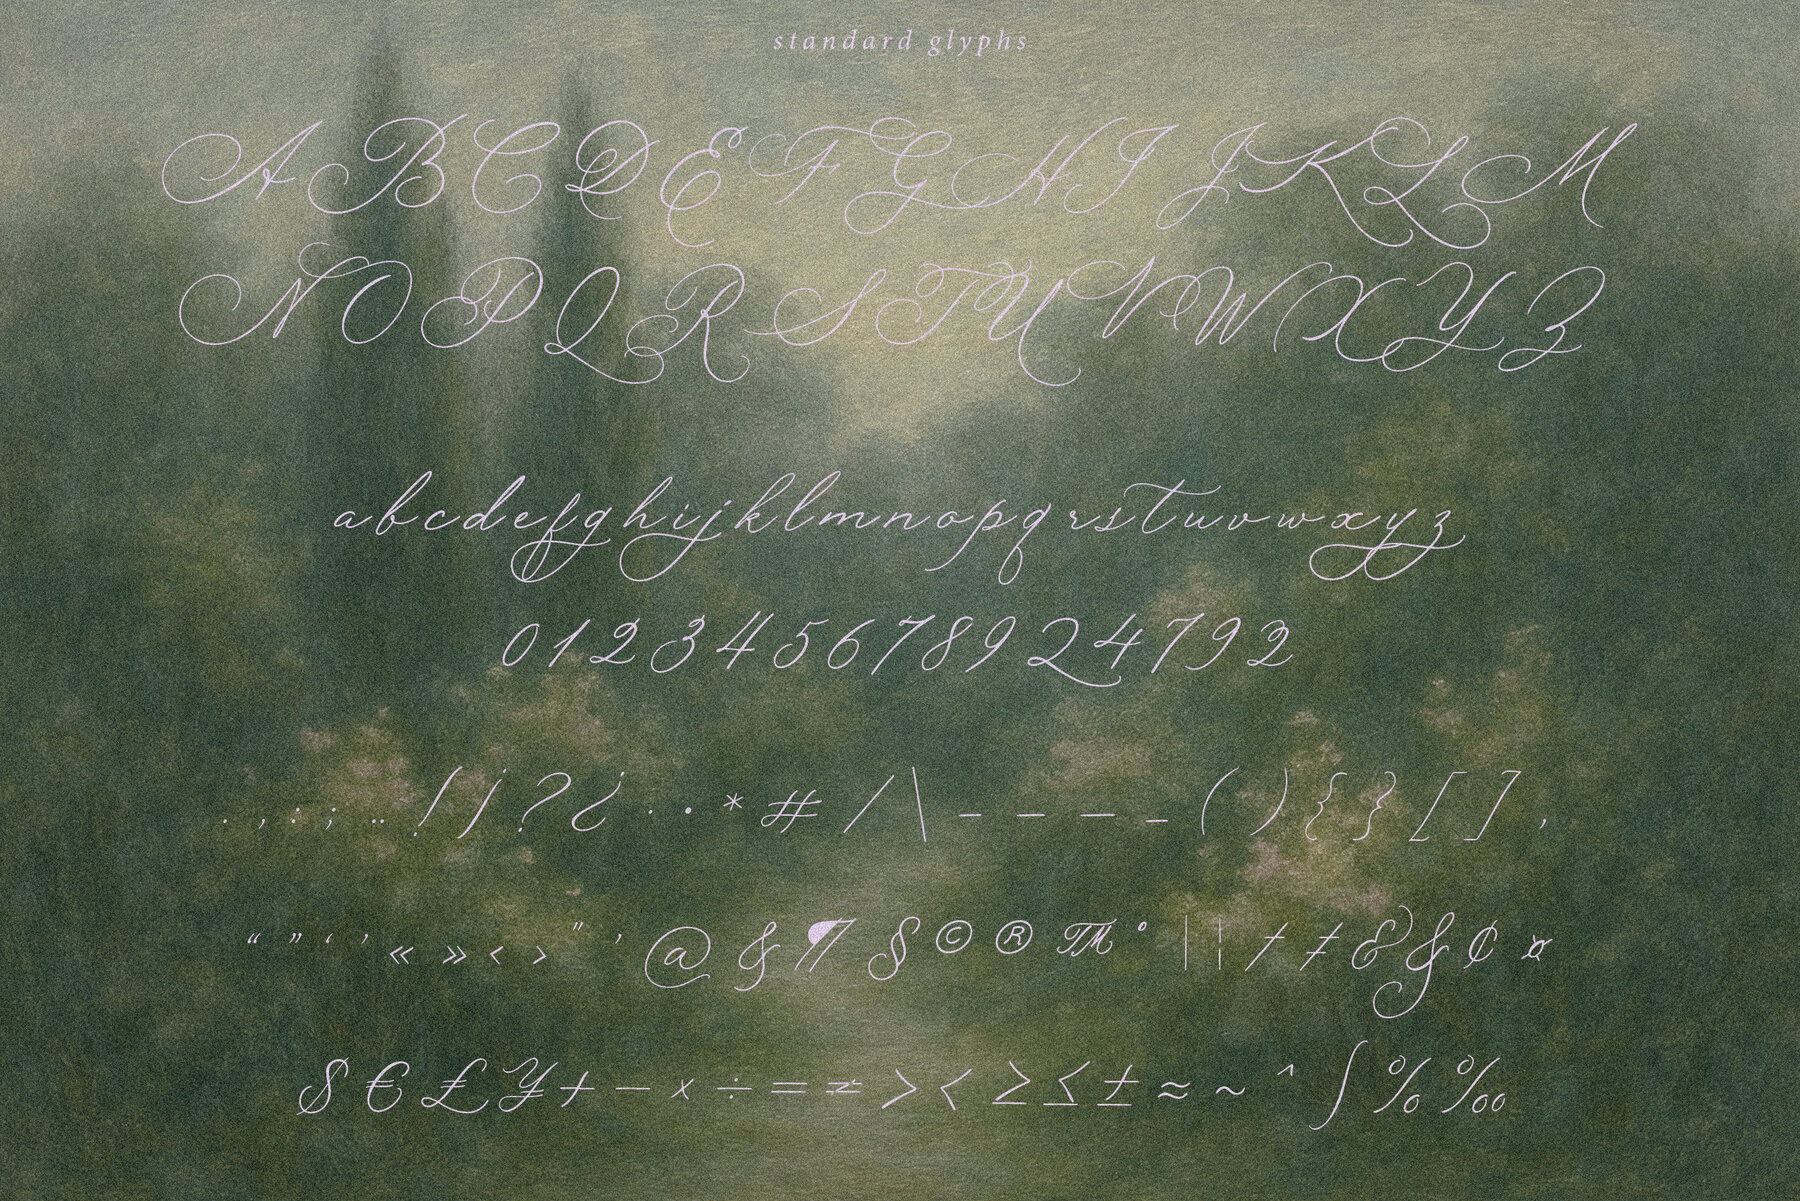 standard glyphs
A B C D E F G H I J K L M
N O P Q R S T U V W X Y Z
a b c d e f g h i j k l m n o p q r s t u v w x y z
0 1 2 3 4 5 6 7 8 9 2 4 7 9 2
. , : ; .. ! ¡ ? ¿ · • * # / \ - – — _ ( ) { } [ ] ‚
“ ” ‘ ’ « » ‹ › " ' @ & ¶ § © ® ™ ° | ¦ † ‡ & & ¢ ¤
$ € £ ¥ + − × ÷ = ≠ > < ≥ ≤ ± ≈ ~ ^ ∫ % ‰